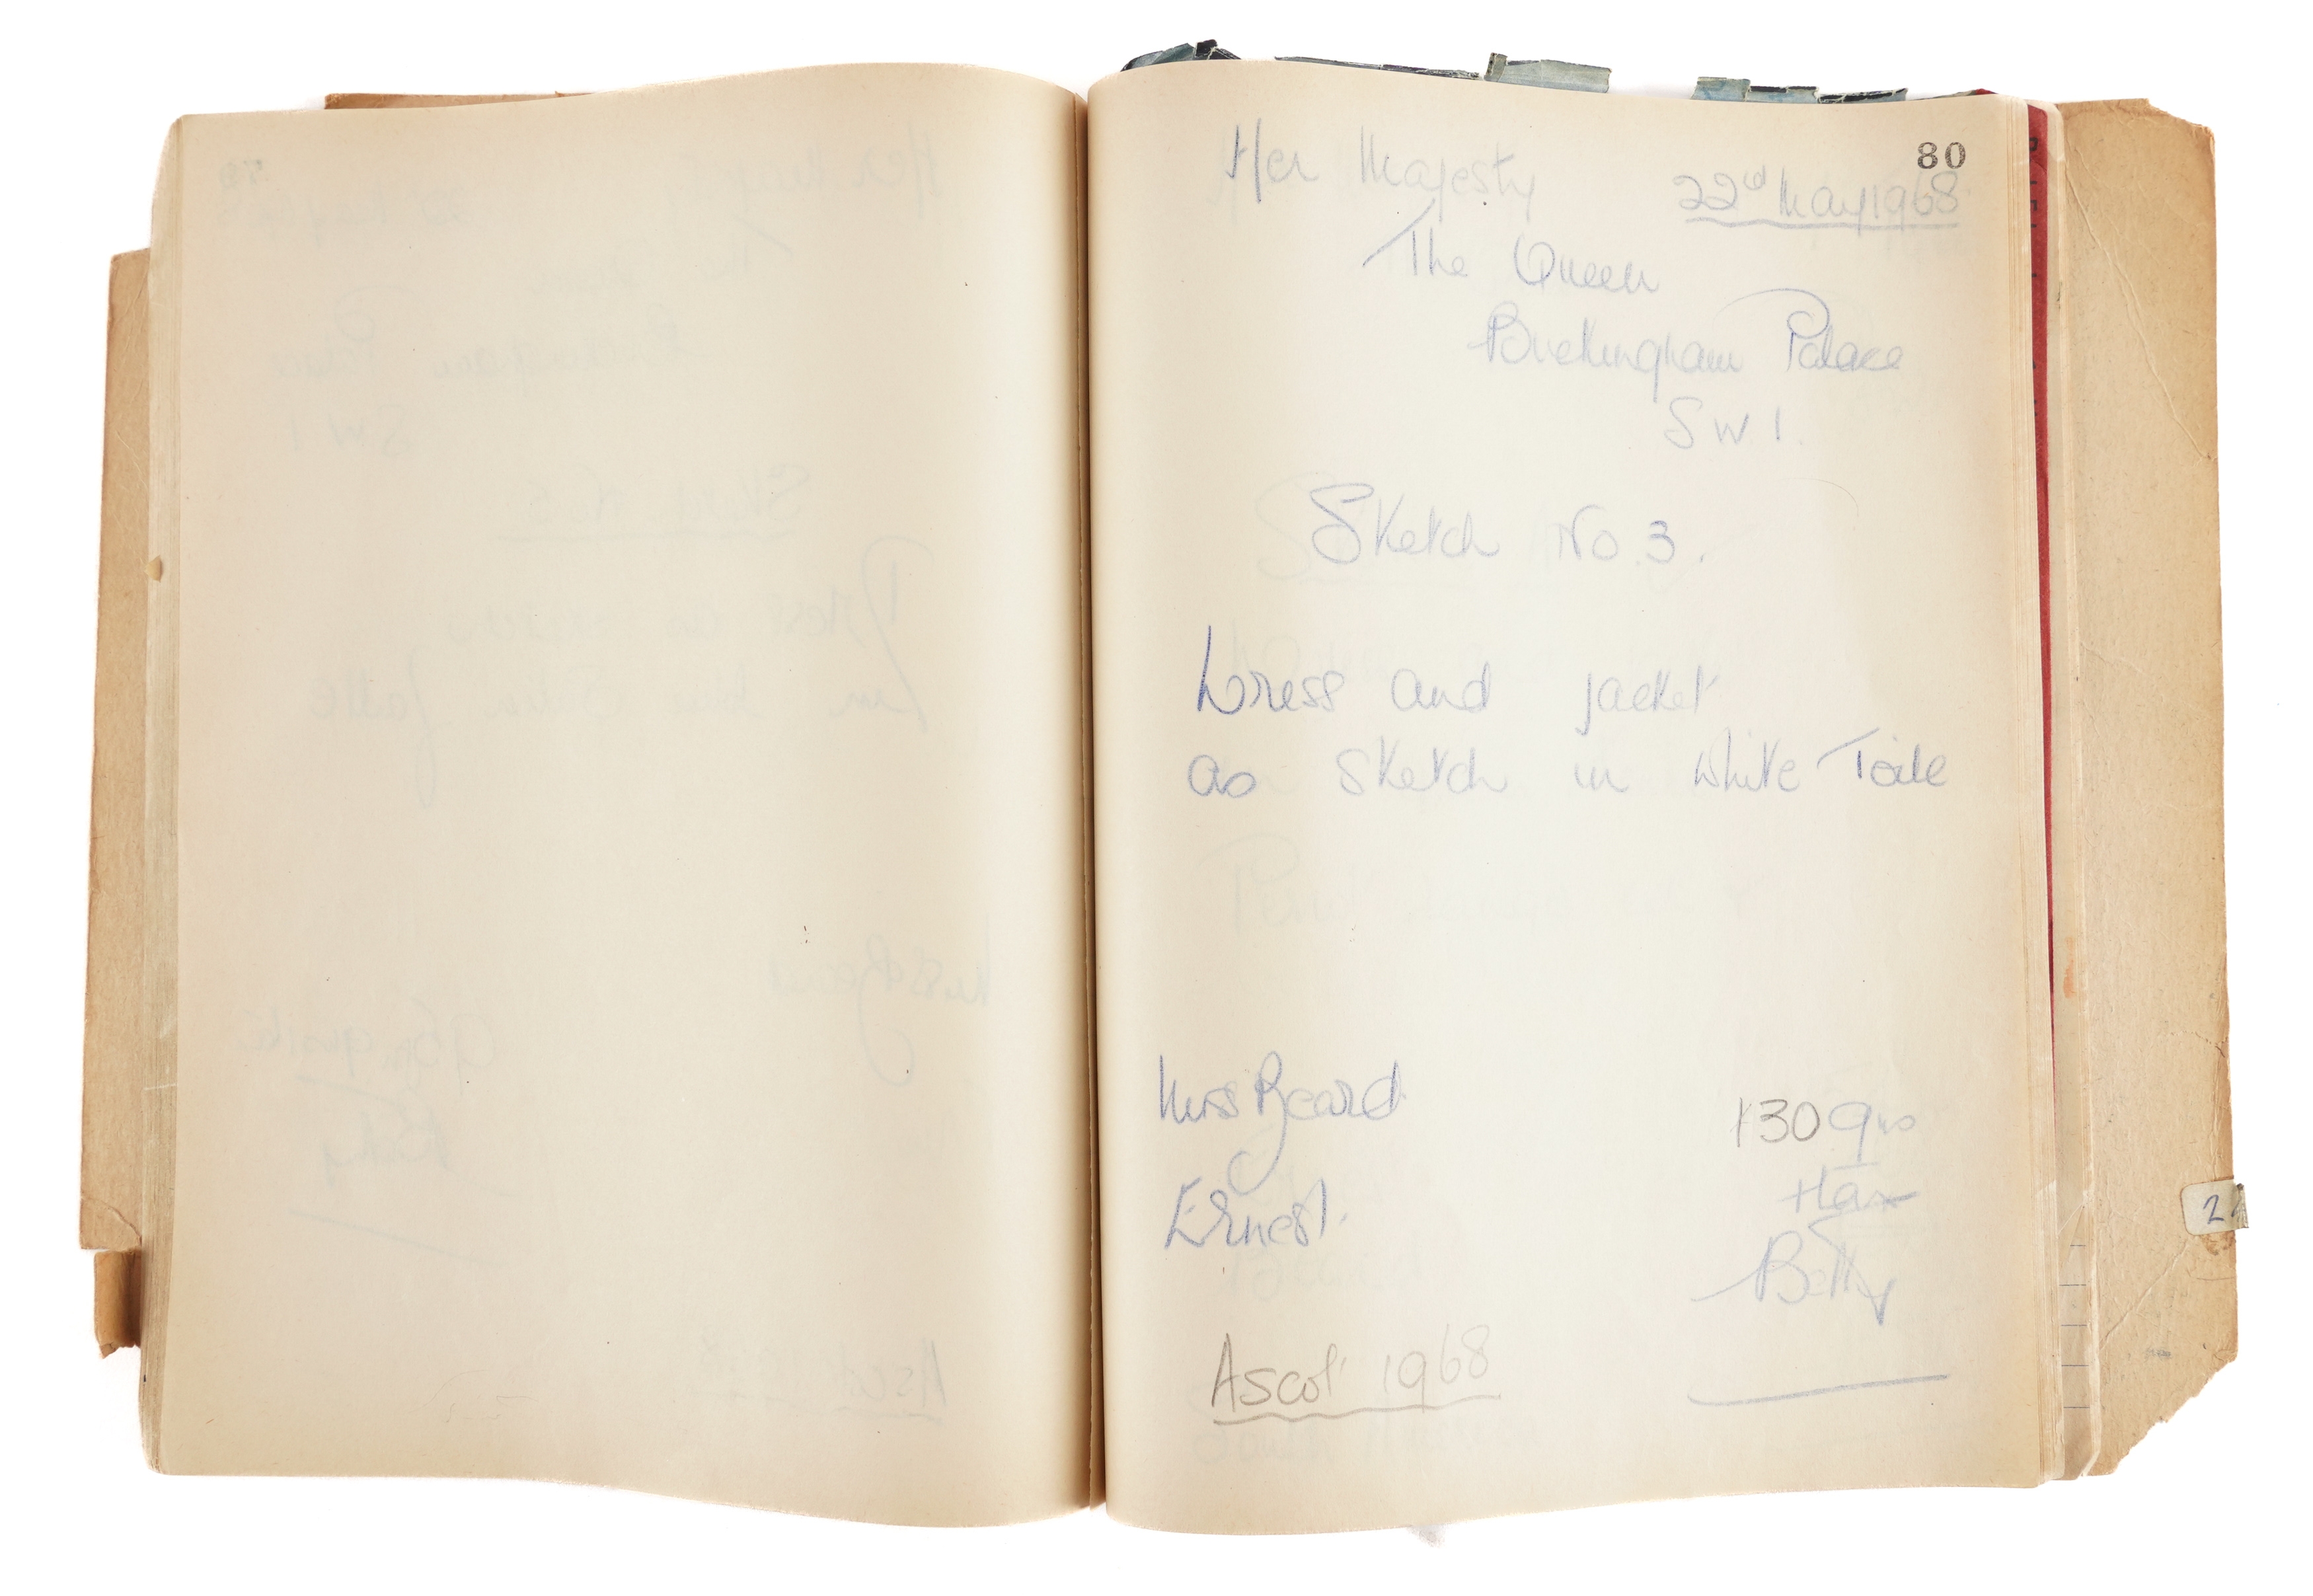 80
Her Majesty 22nd May 1968
The Queen
Buckingham Palace
SW1.
Sketch No.3.
Dress and jacket
as sketch in white Toile
Miss Beard
130 gns
Ernest.
+ tax
Betty
Ascot 1968
2